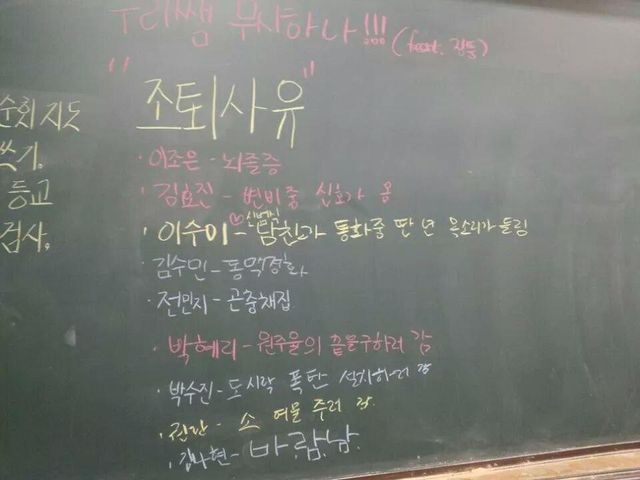 우리쌤 무시하나!!! (feat. 징퉁)
"조퇴사유"
순회 지도
쓰기,
등교
검사,
· 이조은 - 뇌졸증
· 김효진 - 변비중 신호가 옴
· 이수이 ♡ 신병식 - 남친과 통화중 딴 년 목소리가 들림
· 김수민 - 동맥경화
· 전민지 - 곤충채집
· 박혜리 - 원주율의 끝을구하러 감
· 박수진 - 도시락 폭탄 설치하러 감
· 소 여물 주러 감.
· 김나현 - 바.람.남.